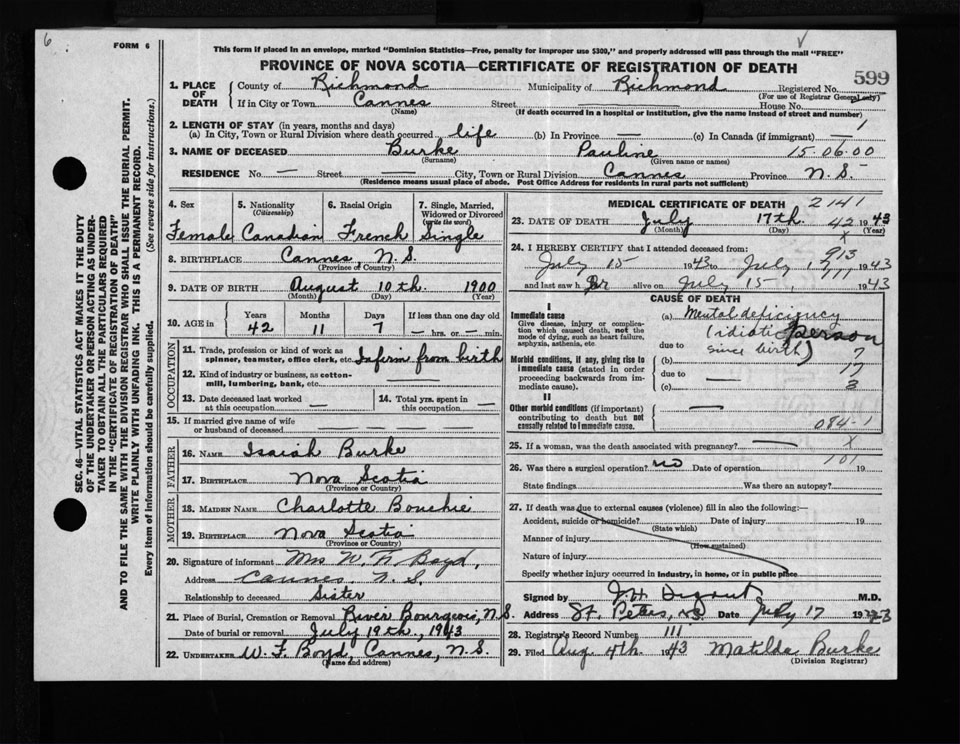 6
FORM 6
This form if placed in an envelope, marked "Dominion Statistics—Free, penalty for improper use $300," and properly addressed will pass through the mail "FREE"
PROVINCE OF NOVA SCOTIA—CERTIFICATE OF REGISTRATION OF DEATH
599
SEC. 46—VITAL STATISTICS ACT MAKES IT THE DUTY
OF THE UNDERTAKER OR PERSON ACTING AS UNDER-
TAKER TO OBTAIN ALL THE PARTICULARS REQUIRED
IN THE "CERTIFICATE OF REGISTRATION OF DEATH"
AND TO FILE THE SAME WITH THE DIVISION REGISTRAR WHO SHALL ISSUE THE BURIAL PERMIT.
WRITE PLAINLY WITH UNFADING INK. THIS IS A PERMANENT RECORD.
Every item of information should be carefully supplied. (See reverse side for instructions.)
1. PLACE OF DEATH
County of Richmond Municipality of Richmond Registered No.
(For use of Registrar General only)
If in City or Town Cannes Street House No.
(Name) (If death occurred in a hospital or institution, give the name instead of street and number)
2. LENGTH OF STAY (in years, months and days)
(a) In City, Town or Rural Division where death occurred life (b) In Province — (c) In Canada (if immigrant) — 1
3. NAME OF DECEASED Burke Pauline 15.06.00
(Surname) (Given name or names)
RESIDENCE No. — Street — City, Town or Rural Division Cannes Province N.S.
(Residence means usual place of abode. Post Office Address for residents in rural parts not sufficient)
4. Sex 5. Nationality (Citizenship) 6. Racial Origin 7. Single, Married, Widowed or Divorced (write the word)
Female Canadian French Single
8. BIRTHPLACE Cannes, N.S.
(Province or Country)
9. DATE OF BIRTH August 10th. 1900
(Month) (Day) (Year)
10. AGE in Years Months Days If less than one day old
42 11 7 — hrs. or — min.
OCCUPATION
11. Trade, profession or kind of work as spinner, teamster, office clerk, etc. Infirm from birth
12. Kind of industry or business, as cotton-mill, lumbering, bank, etc. —
13. Date deceased last worked at this occupation — 14. Total yrs. spent in this occupation —
15. If married give name of wife or husband of deceased —
FATHER
16. NAME Isaiah Burke
17. BIRTHPLACE Nova Scotia
(Province or Country)
MOTHER
18. MAIDEN NAME Charlotte Bouchie
19. BIRTHPLACE Nova Scotia
(Province or Country)
20. Signature of informant Mrs W. F. Boyd,
Address Cannes, N.S.
Relationship to deceased Sister
21. Place of Burial, Cremation or Removal River Bourgeois, N.S.
Date of burial or removal July 19th., 1943
22. UNDERTAKER W. F. Boyd, Cannes, N.S.
(Name and address)
MEDICAL CERTIFICATE OF DEATH 2141
23. DATE OF DEATH July 17th. 42 1943
(Month) (Day) (Year)
X
24. I HEREBY CERTIFY that I attended deceased from:
July 15 1943 to July 1943
and last saw her alive on July 15 1943
CAUSE OF DEATH
I
Immediate cause (a) Mental deficiency
Give disease, injury or complication which caused death, not the mode of dying, such as heart failure, asphyxia, asthenia, etc.
person
due to since birth)
7
Morbid conditions, if any, giving rise to immediate cause (stated in order proceeding backwards from immediate cause). (b)
17
due to
(c) 3
II
Other morbid conditions (if important) contributing to death but not causally related to immediate cause.
084-1
25. If a woman, was the death associated with pregnancy? — X
101
26. Was there a surgical operation? no Date of operation 19
State findings Was there an autopsy?
27. If death was due to external causes (violence) fill in also the following:—
Accident, suicide or homicide? Date of injury 19
(State which)
Manner of injury
(How sustained)
Nature of injury
Specify whether injury occurred in industry, in home, or in public place
Signed by M.D.
Address St. Peters, N.S. Date July 17 19
28. Registrar's Record Number 111
29. Filed Aug. 4th. 1943 Matilda Burke
(Division Registrar)